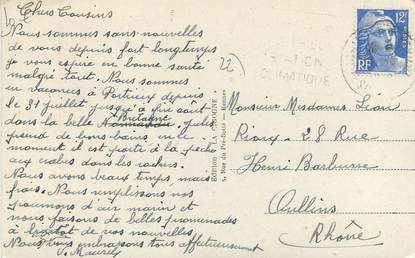 Chers Cousins
Nous sommes sans nouvelles
de vous depuis fort longtemps
je vous espère en bonne santé
malgré tout. Nous sommes
en vacances à Portrieux depuis
le 31 juillet jusqu'à fin août
Bretagne
dans la belle
prend de bons bains de mer en ce
moment il est parti à la pêche
aux crabes dans les rochers.
Nous avons beau temps mais
frais. Nous remplissons nos
poumons d'air marin et
nous faisons de belles promenades
à de vos nouvelles
Nous embrassons tous affectueusement
22
Edition "LA CIGOGNE"
5, Rue du Pré-Botté - Rennes
12F
POSTES
RF
STATION
CLIMATIQUE
Monsieur Mesdames Léon
Rioux - 28 Rue
Henri Barbusse
Oullins
Rhône